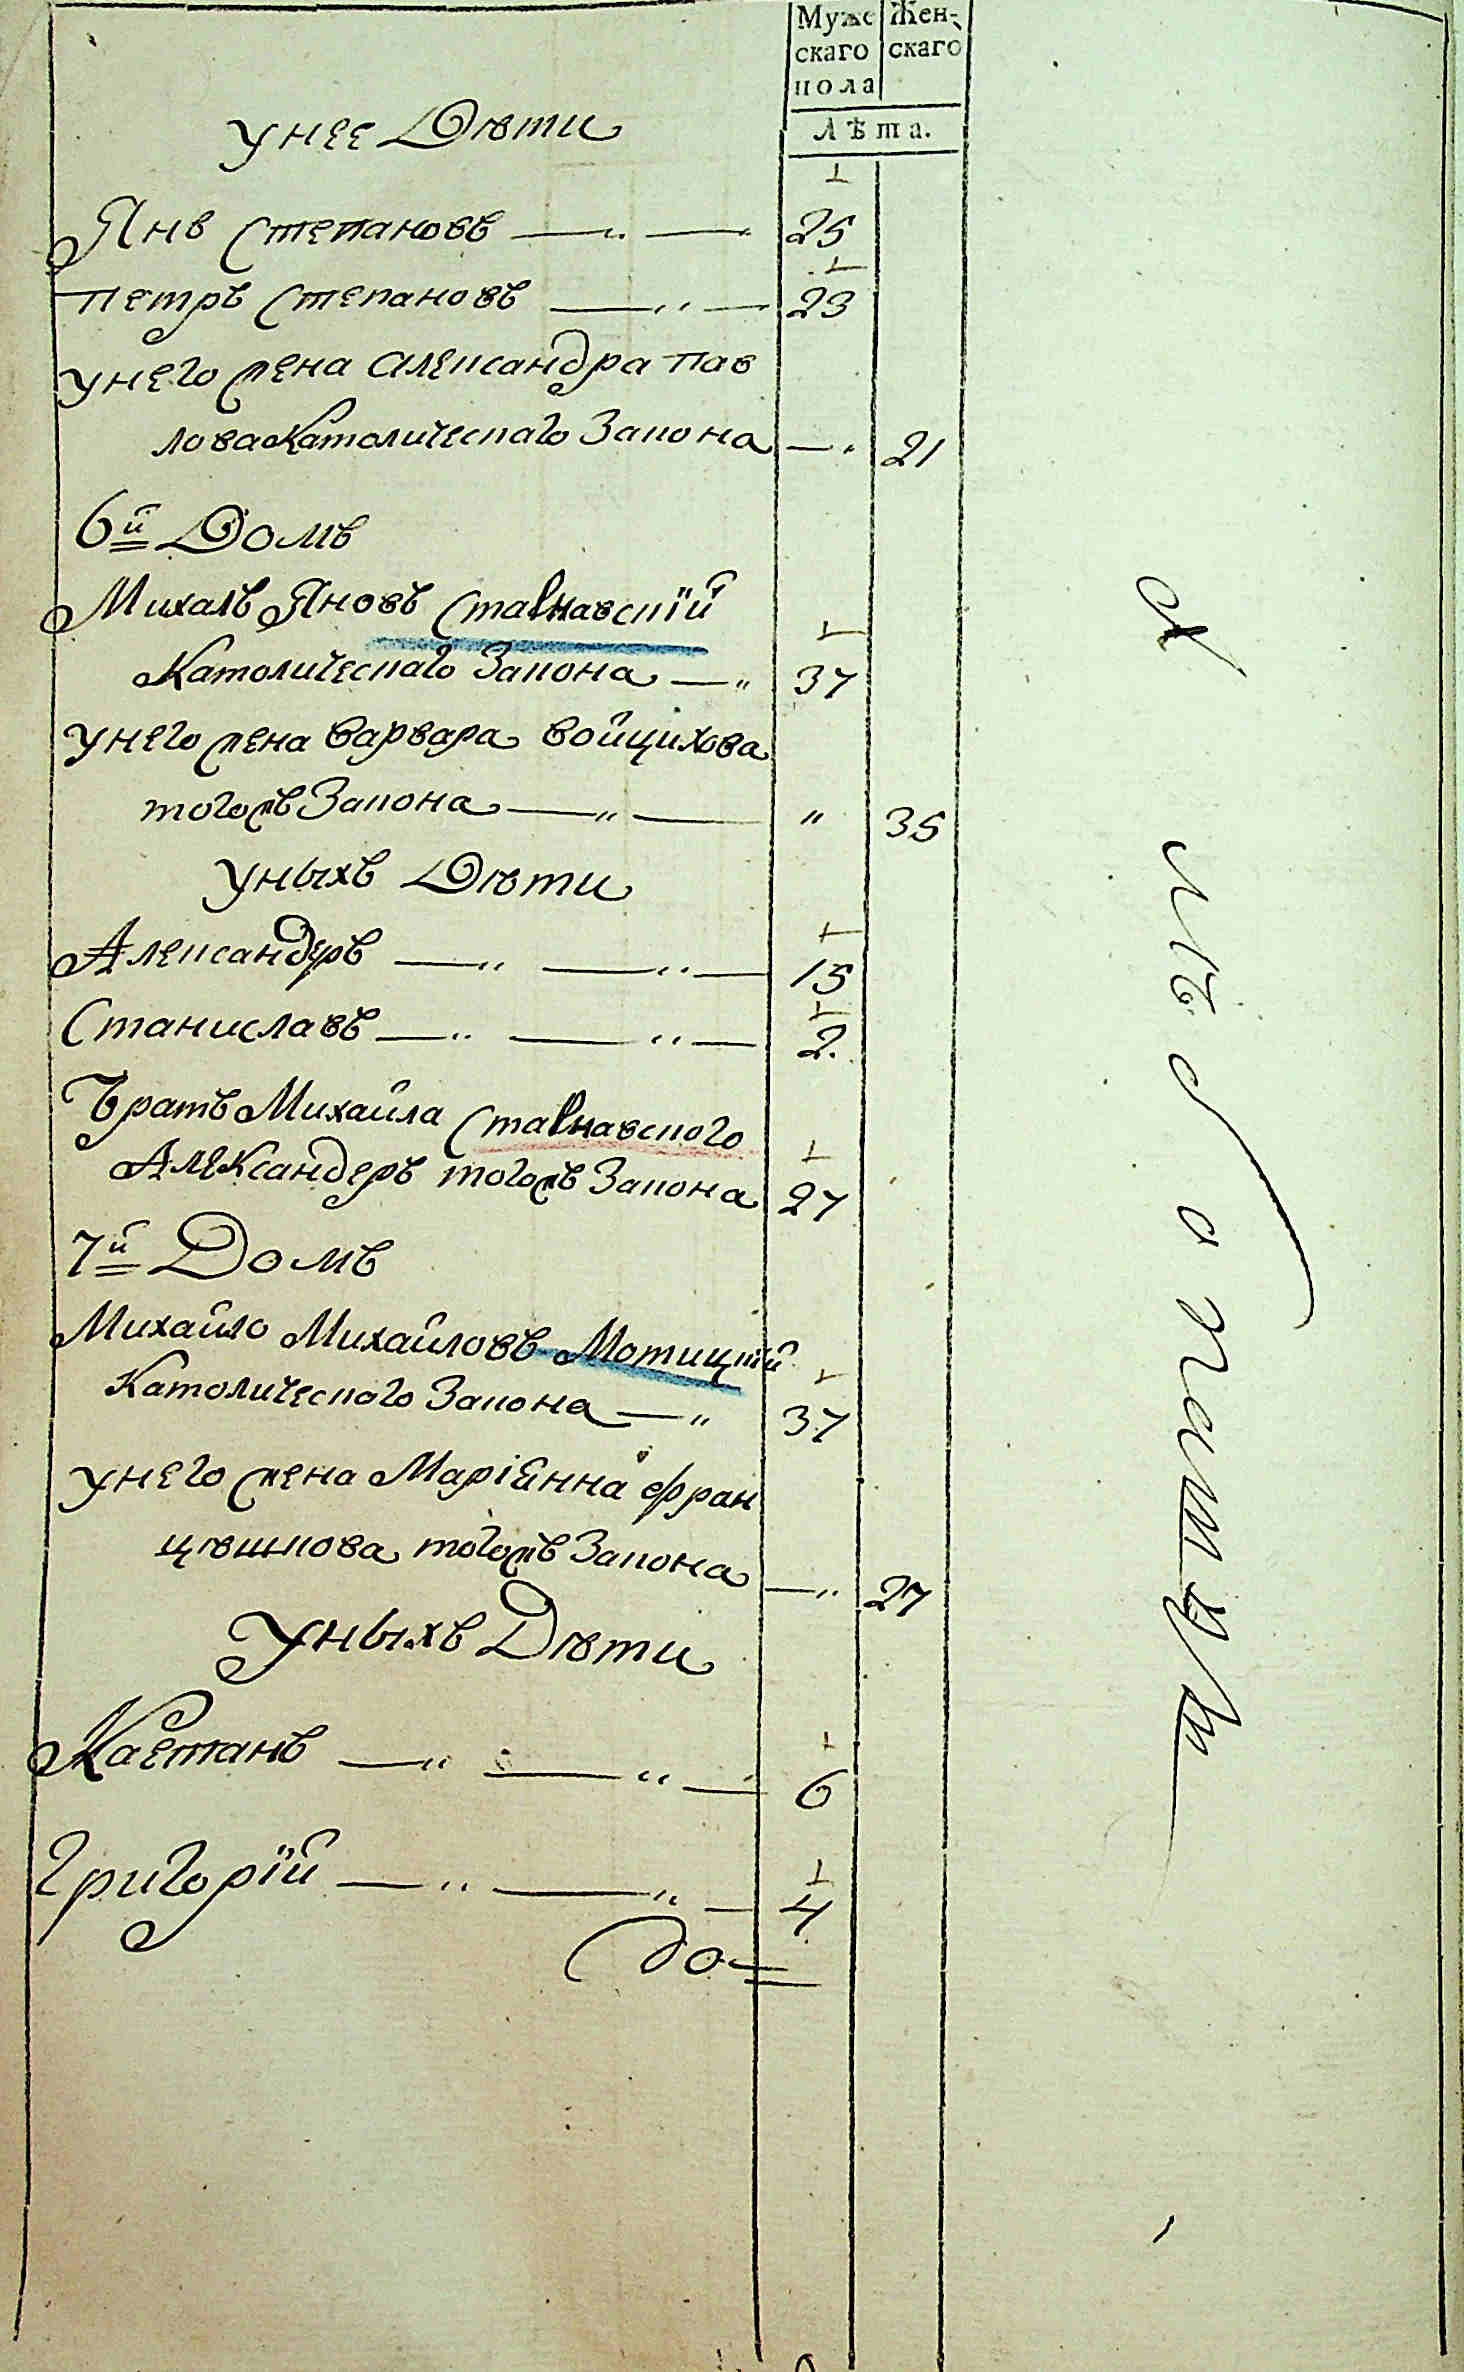 Муже Жен-
скаго скаго
пола
Лѣта.
унее Дѣти
Янъ Степановъ — „ — 25
петръ Степановъ — „ — 23
унего жена александра пав
лова католическаго Закона — „ 21
6й Домъ
Михалъ Яновъ
Католическаго Закона — „ 37
унего жена варвара войцихова
тогожъ Закона — „ — „ 35
уныхъ Дѣти
Александеръ — „ — „ — 15
Станиславъ — „ — „ — 2.
братъ Михайла
Александеръ тогожъ Закона 27
7й Домъ
Михайло Михайловъ Мотицкій
Католическаго Закона — „ 37
унего жена Маріянна фран
цѣшкова тогожъ Закона — „ 27
Уныхъ Дѣти
Каетанъ — „ — „ — 6
Григорій — „ — „ — 4